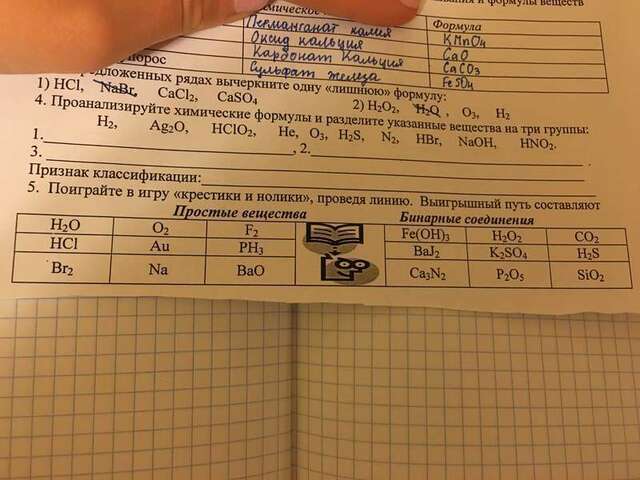 и формулы веществ
Формула
Перманганат калия KMnO4
Оксид кальция CaO
Карбонат Кальция CaCO3
Сульфат железа FeSO4
рядах вычеркните одну «лишнюю» формулу:
1) HCl, NaBr, CaCl2, CaSO4 2) H2O2, H2O, O3, H2
4. Проанализируйте химические формулы и разделите указанные вещества на три группы:
H2, Ag2O, HClO2, He, O3, H2S, N2, HBr, NaOH, HNO2.
1. , 2.
3. .
Признак классификации:
5. Поиграйте в игру «крестики и нолики», проведя линию. Выигрышный путь составляют
Простые вещества Бинарные соединения
H2O O2 F2 Fe(OH)3 H2O2 CO2
HCl Au PH3 BaJ2 K2SO4 H2S
Br2 Na BaO Ca3N2 P2O5 SiO2